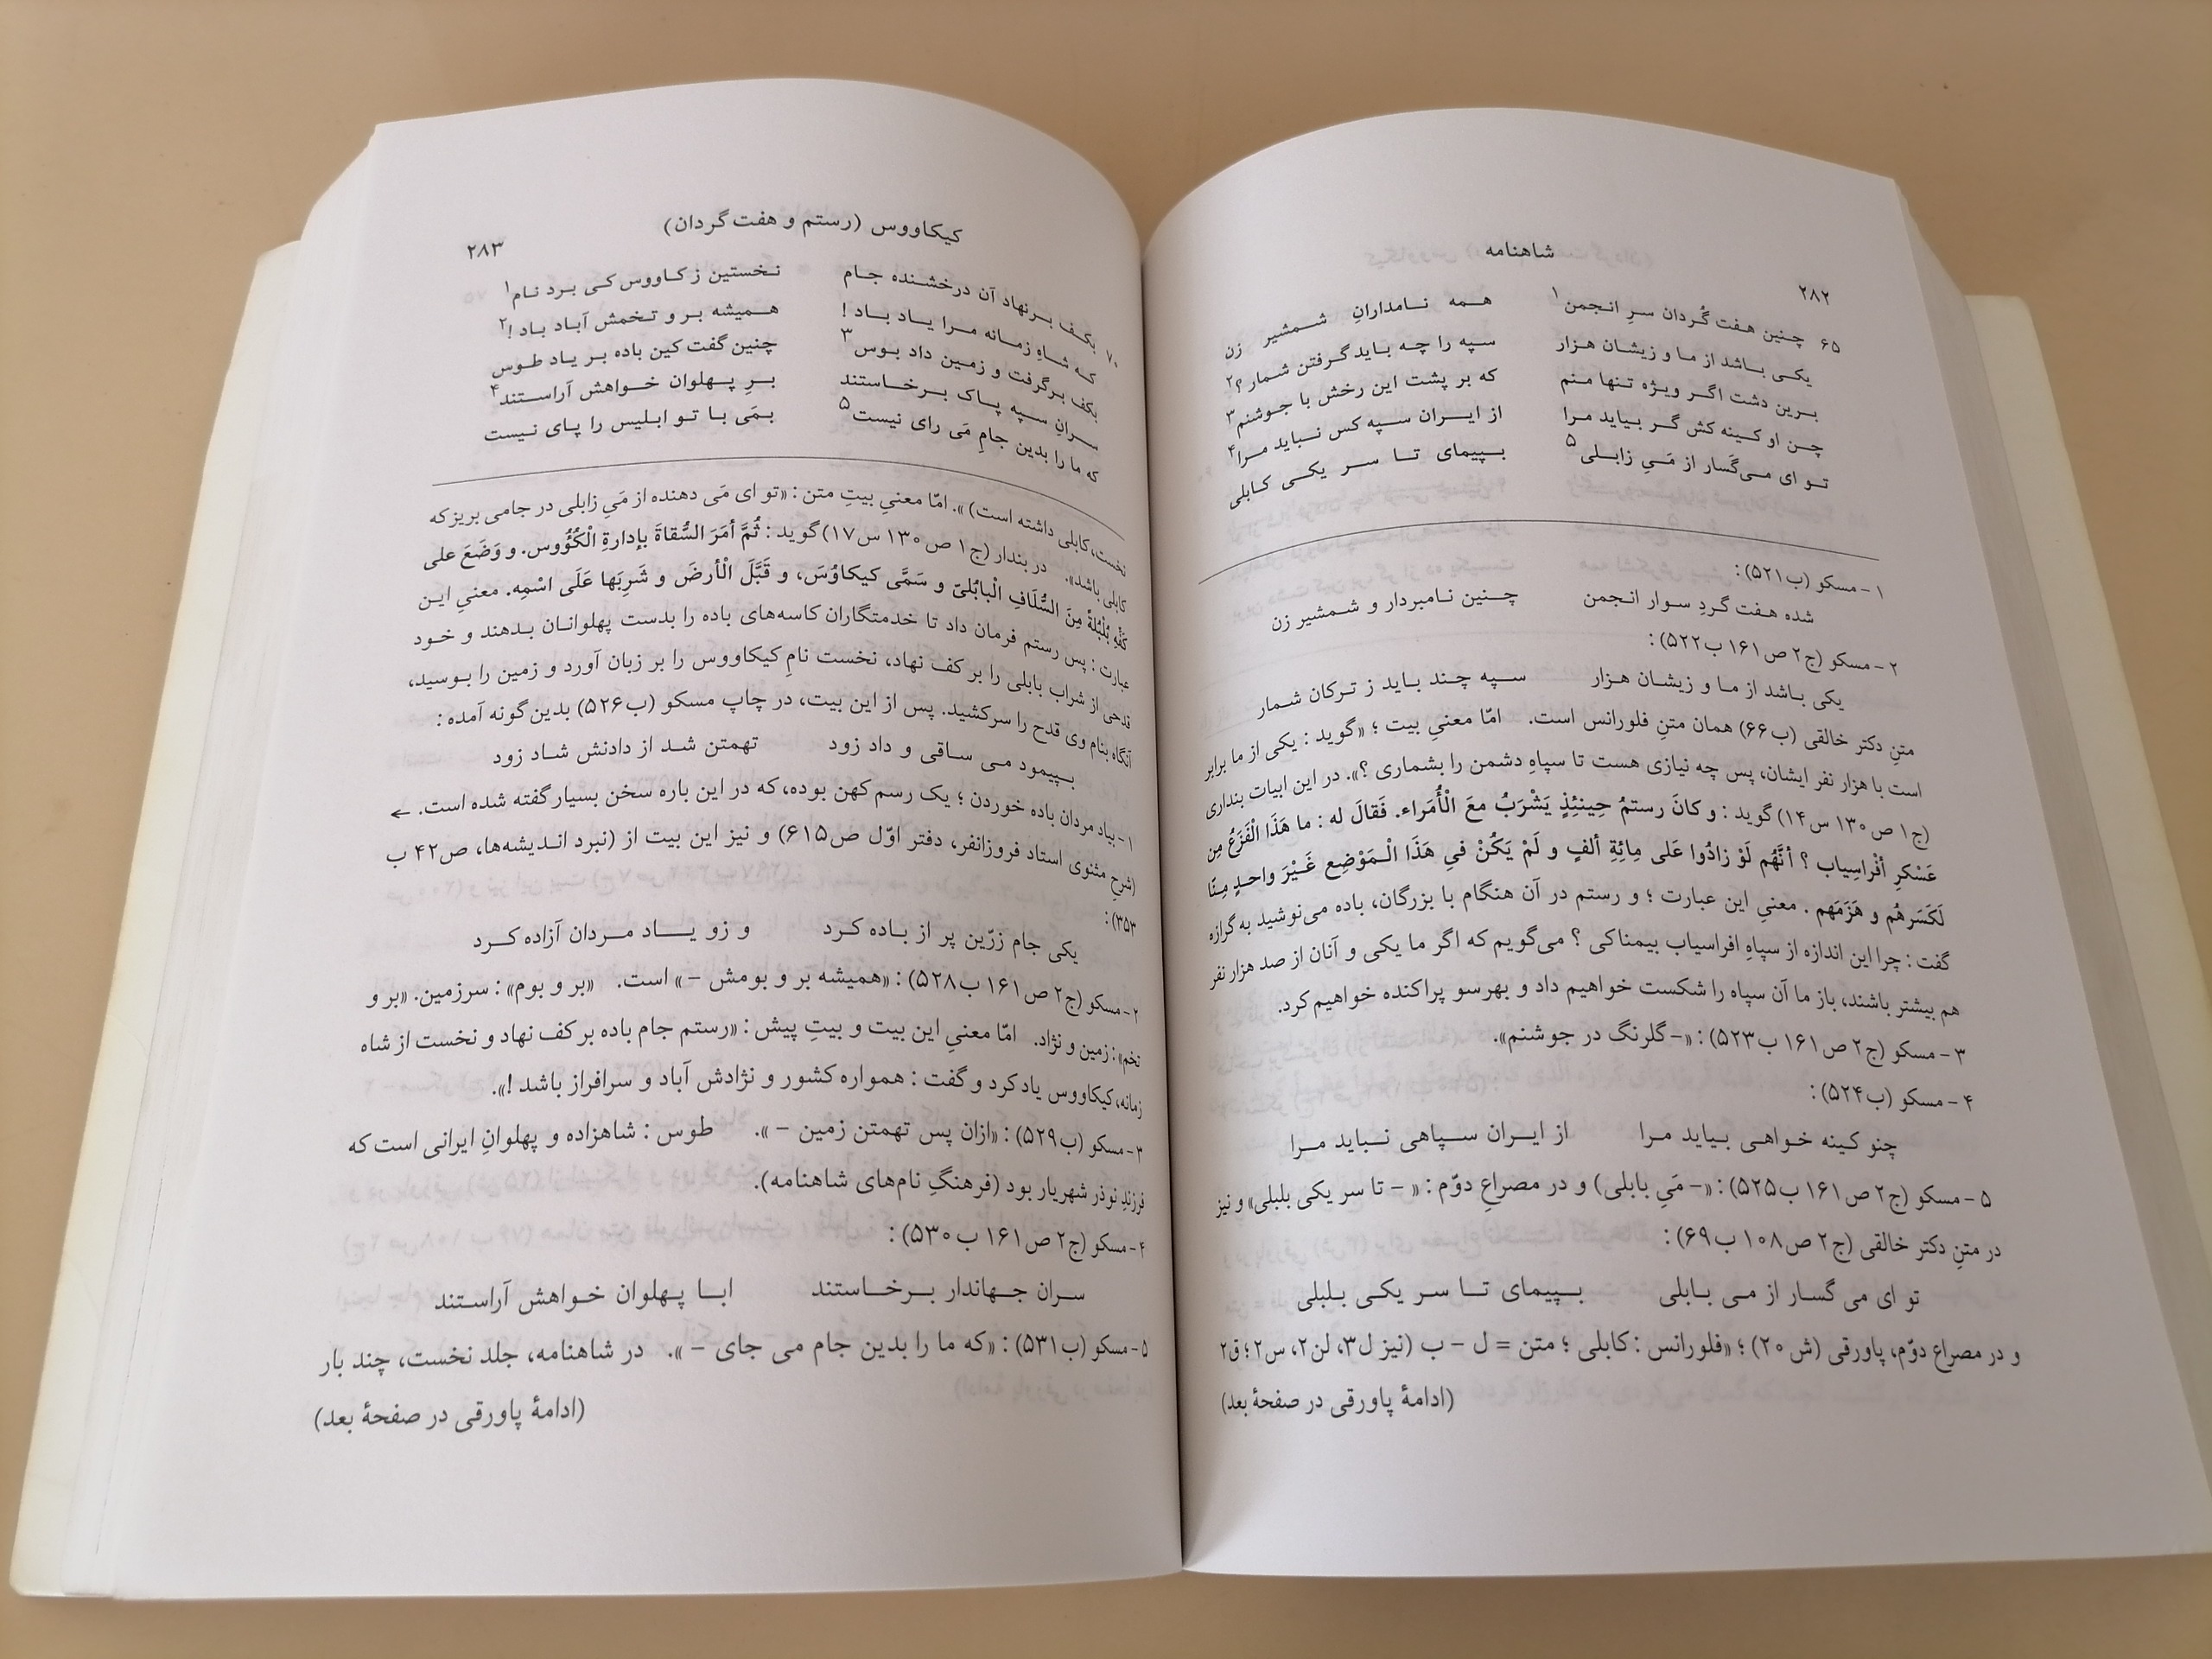 ۲۸۲
شاهنامه
۶۵ چنین هفت گُردان سرِ انجمن۱ همه نامدارانِ شمشیر زن
یکی باشد از ما و زیشان هزار سپه را چه باید گرفتن شمار؟۲
برین دشت اگر ویژه تنها منم که بر پشت این رخش با جوشنم۳
چن او کینه کش گر بیاید مرا از ایران سپه کس نباید مرا۴
تو ای می‌گسار از مَیِ زابلی۵ بپیمای تا سر یکی کابلی
۱ - مسکو (ب۵۲۱):
شده هفت گردِ سوار انجمن چنین نامبردار و شمشیر زن
۲ - مسکو (ج۲ ص۱۶۱ ب۵۲۲):
یکی باشد از ما و زیشان هزار سپه چند باید ز ترکان شمار
متنِ دکتر خالقی (ب۶۶) همان متنِ فلورانس است. امّا معنیِ بیت ؛ «گوید : یکی از ما برابر
است با هزار نفر ایشان، پس چه نیازی هست تا سپاهِ دشمن را بشماری ؟». در این ابیات بنداری
(ج۱ ص۱۳۰ س۱۴) گوید : و کانَ رستمُ حِینئِذٍ یَشْرَبُ معَ الْأُمَراء. فَقالَ له : ما هَذَا الْفَزَعُ مِن
عَسْکرِ أفْراسِیاب ؟ أنَّهُم لَوْ زادُوا عَلی مِائِةِ ألفٍ و لَمْ یَکُنْ فیِ هَذَا الْمَوْضِعِ غَیْرَ واحدٍ مِنّا
لَکَسَرهُم و هَزَمَهم . معنیِ این عبارت ؛ و رستم در آن هنگام با بزرگان، باده می‌نوشید به گرازه
گفت : چرا این اندازه از سپاهِ افراسیاب بیمناکی ؟ می‌گویم که اگر ما یکی و آنان از صد هزار نفر
هم بیشتر باشند، باز ما آن سپاه را شکست خواهیم داد و بهرسو پراکنده خواهیم کرد.
۳ - مسکو (ج۲ ص۱۶۱ ب۵۲۳) : «- گلرنگ در جوشنم».
۴ - مسکو (ب۵۲۴) :
چنو کینه خواهی بیاید مرا از ایران سپاهی نباید مرا
۵ - مسکو (ج۲ ص۱۶۱ ب۵۲۵) : «- مَیِ بابلی) و در مصراعِ دوّم : « - تا سر یکی بلبلی» و نیز
در متنِ دکتر خالقی (ج۲ ص۱۰۸ ب۶۹) :
تو ای می گسار از می بابلی بپیمای تا سر یکی بلبلی
و در مصراع دوّم، پاورقی (ش۲۰) ؛ «فلورانس : کابلی ؛ متن = ل - ب (نیز ل۳، لن۲، س۲ ؛ ق۲
(ادامهٔ پاورقی در صفحهٔ بعد)
کیکاووس (رستم و هفت گردان)
۲۸۳
۷۰ بکف برنهاد آن درخشنده جام نخستین ز کاووس کی برد نام۱
که شاهِ زمانه مرا یاد باد ! همیشه بر و تخمش آباد باد !۲
بکف برگرفت و زمین داد بوس۳ چنین گفت کین باده بر یاد طوس
سرانِ سپه پاک برخاستند برِ پهلوان خواهش آراستند۴
که ما را بدین جامِ مَی رای نیست۵ بمَی با تو ابلیس را پای نیست
نخست،کابلی داشته است) ». امّا معنیِ بیتِ متن : «تو ای مَی دهنده از مَیِ زابلی در جامی بریز که
کابلی باشد». در بندار (ج۱ ص۱۳۰ س۱۷) گوید : ثُمَّ أمَرَ السُّقاةَ بإدارةِ الْکُؤُوس. و وَضَعَ علی
کفّهِ بُلْبُلةً مِنَ السُّلافِ الْبابُلیّ و سَمَّی کیکاوُسَ، و قَبَّلَ الْأرضَ و شَرِبَها عَلَی اسْمِه. معنیِ این
عبارت : پس رستم فرمان داد تا خدمتگاران کاسه‌های باده را بدست پهلوانان بدهند و خود
قدحی از شراب بابلی را بر کف نهاد، نخست نامِ کیکاووس را بر زبان آورد و زمین را بوسید،
آنگاه بنام وی قدح را سرکشید. پس از این بیت، در چاپ مسکو (ب۵۲۶) بدین‌گونه آمده :
بپیمود می ساقی و داد زود تهمتن شد از دادنش شاد زود
۱ - بیاد مردان باده خوردن ؛ یک رسم کهن بوده، که در این باره سخن بسیار گفته شده است. ←
(شرحِ مثنوی استاد فروزانفر، دفتر اوّل ص۶۱۵) و نیز این بیت از (نبرد اندیشه‌ها، ص۴۲ ب
۳۵۳) :
یکی جام زرّین پر از باده کرد و زو یاد مردان آزاده کرد
۲ - مسکو (ج۲ ص۱۶۱ ب۵۲۸) : «همیشه بر و بومش - » است. «بر و بوم» : سرزمین. «بر و
تخم» : زمین و نژاد. امّا معنیِ این بیت و بیتِ پیش : «رستم جام باده بر کف نهاد و نخست از شاه
زمانه،کیکاووس یاد کرد و گفت : همواره کشور و نژادش آباد و سرافراز باشد !».
۳ - مسکو (ب۵۲۹) : «ازان پس تهمتن زمین - ». طوس : شاهزاده و پهلوانِ ایرانی است که
فرزندِ نوذر شهریار بود (فرهنگِ نام‌های شاهنامه).
۴ - مسکو (ج۲ ص۱۶۱ ب۵۳۰) :
سران جهاندار برخاستند ابا پهلوان خواهش آراستند
۵ - مسکو (ب۵۳۱) : «که ما را بدین جام می جای - ». در شاهنامه، جلد نخست، چند بار
(ادامهٔ پاورقی در صفحهٔ بعد)